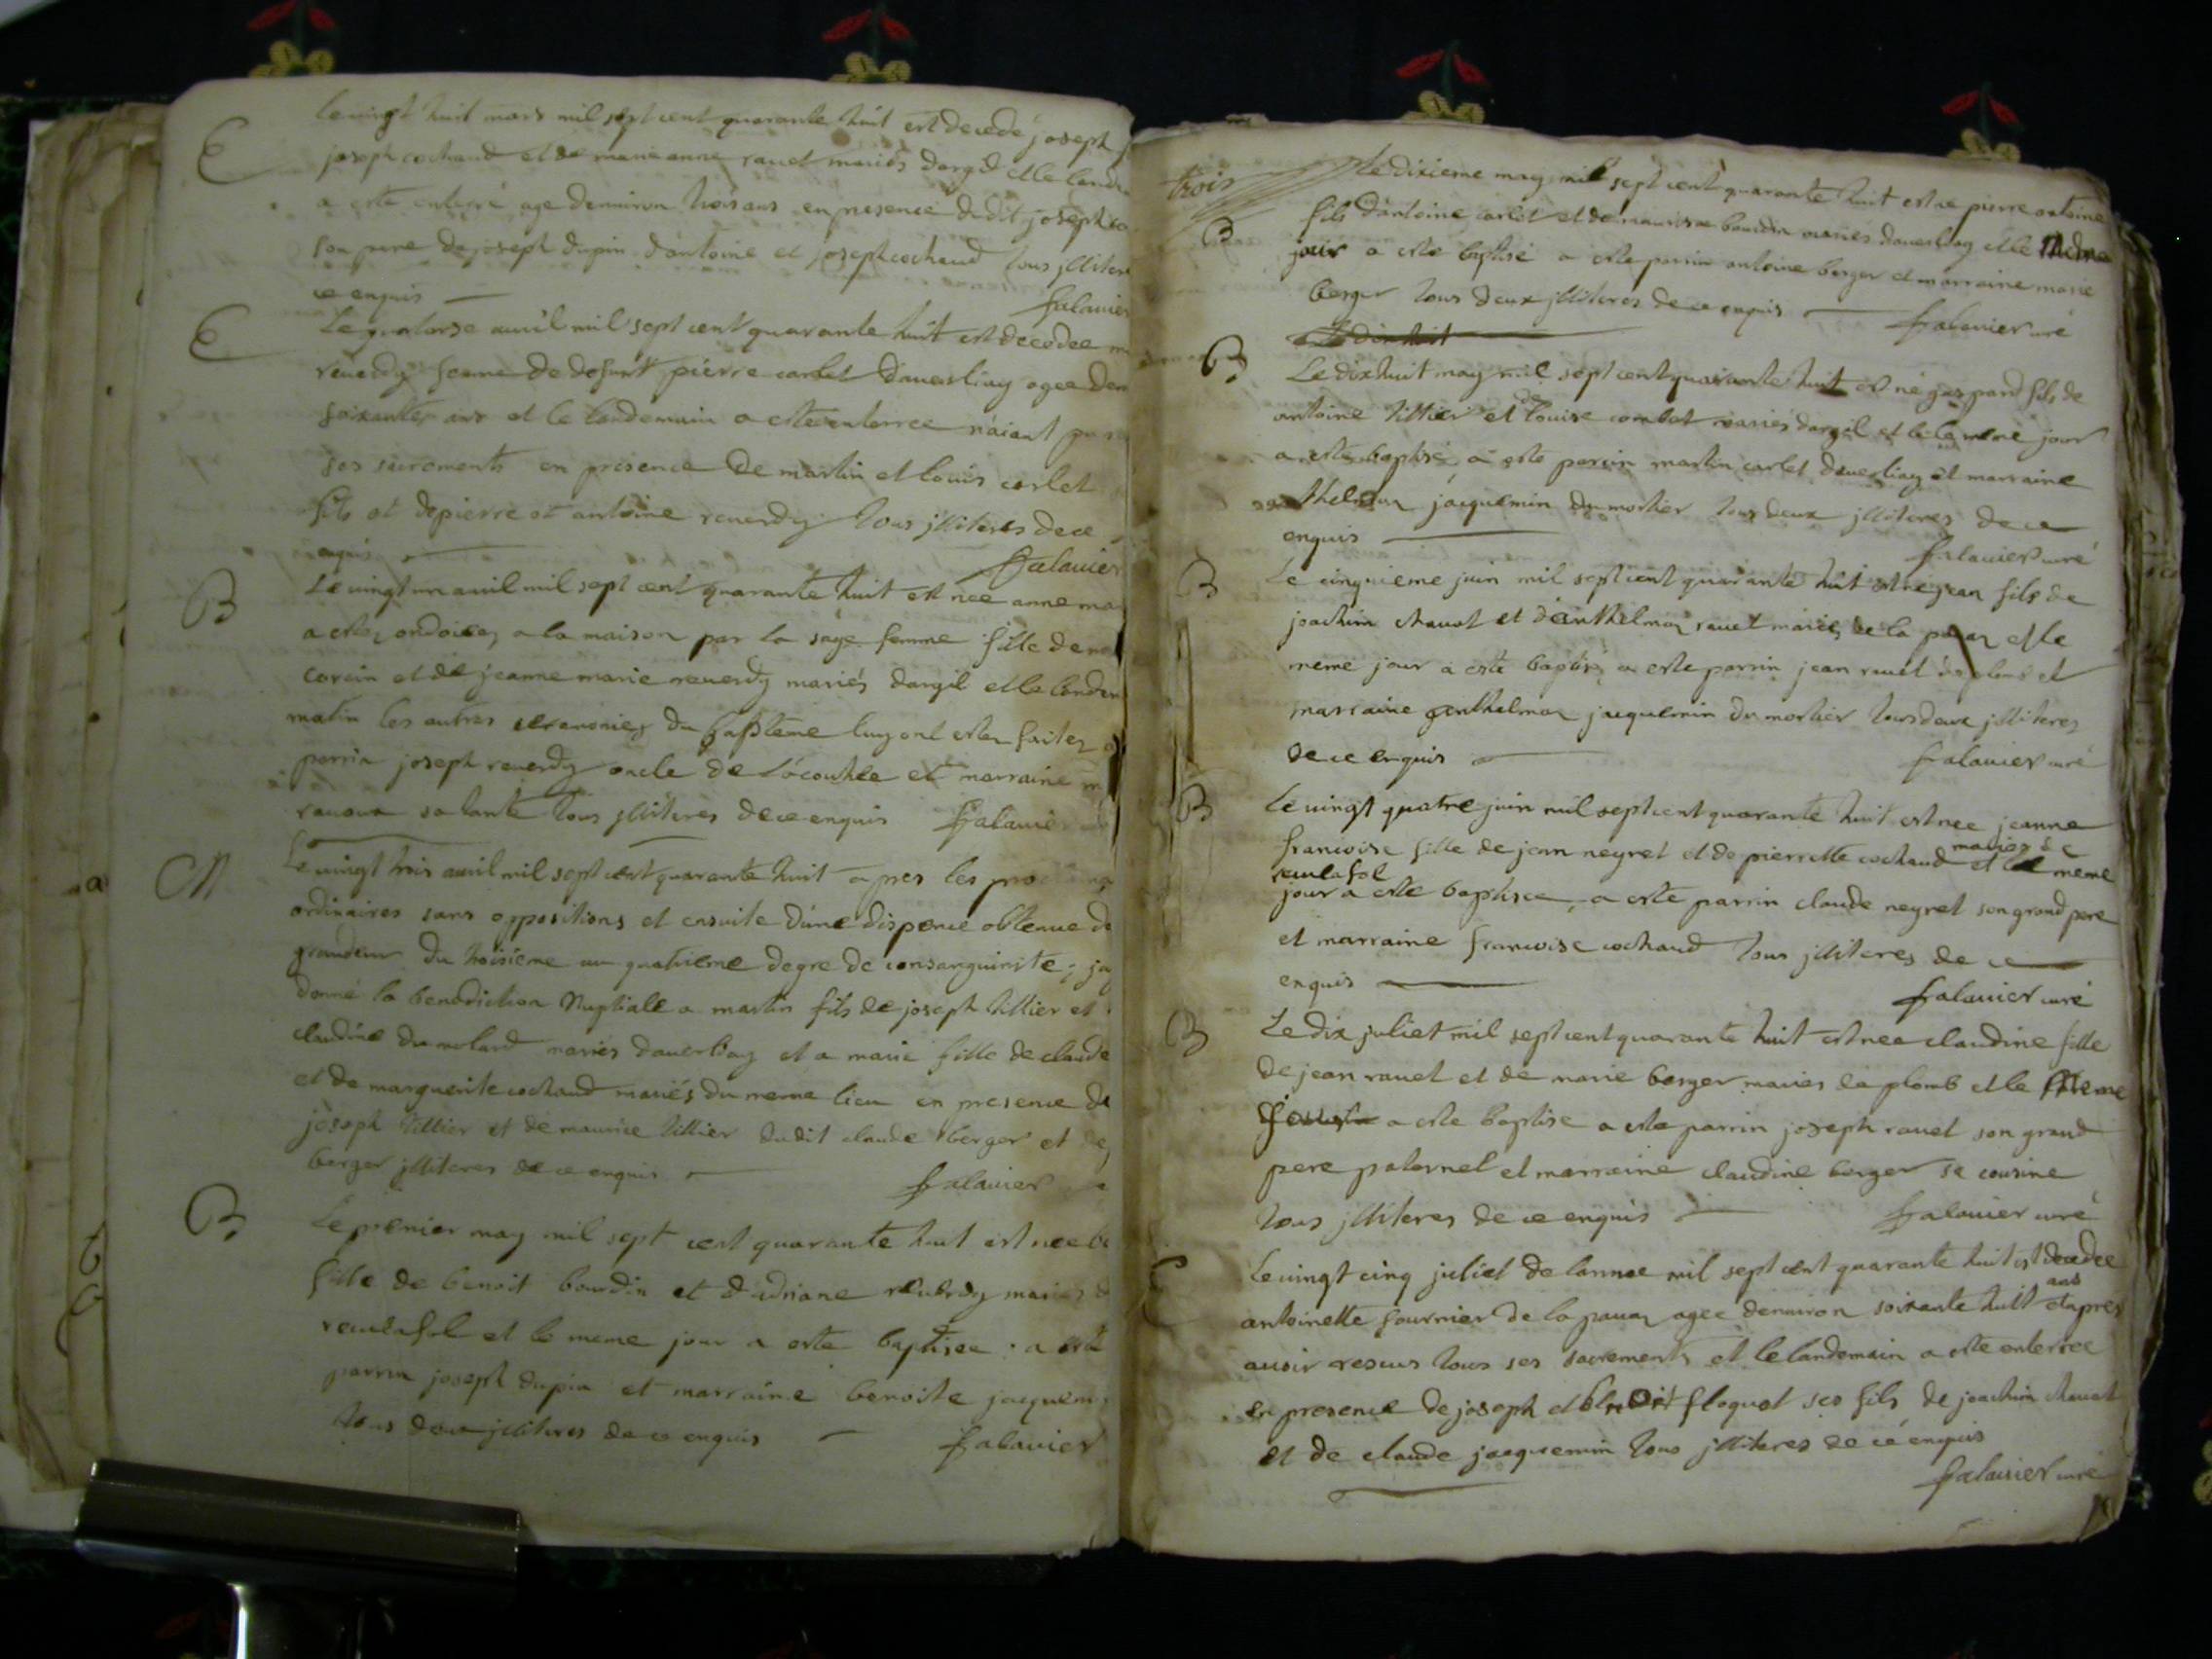 E
le vingt huit mars mil sept cent quarante huit est decedé joseph
joseph cochaud et de marie anne ravet mariés dargil et le lande
a esté enterré age denviron trois ans en presence dudit joseph co
son pere de joseph dupin d'antoine et joseph cochaud tous jlliter
ce enquis
falavier
E
Le quatorse avril mil sept cent quarante huit est decedee
reverdy femme de defunt pierre carlet daverliay agee den
soixante ans et le landemain a esté enterree n'aiant pu
ses sacrements en presence de martin et louis carlet
fils et de pierre et antoine reverdy tous jlliteres de ce
enquis
falavier
B
Le vingt un avril mil sept cent quarante huit est nee anne ma
a estez ondoiez a la maison par la sage femme fille de
corcin et de jeanne marie reverdy mariés dargil et le landem
matin les autres ceremoniez du baptême luy ont estez faitez
parrin joseph reverdy oncle de et marraine
sa tante tous jlliteres de ce enquis falavier
M
Le vingt trois avril mil sept cent quarante huit apres les
ordinaires sans oppositions et ensuite dune dispence obtenue de
grandeur du troisième au quatrième degre de consanguinite; jay
donné la benediction Nuptialle a martin fils de joseph tillier et
claudine dumolard mariés daverliay et a marie fille de claude
et de marguerite cochaud mariés du meme lieu en presence de
joseph tillier et de maurice tillier dudit claude berger et de
berger jlliteres de ce enquis
falavier
B
Le premier may mil sept cent quarante huit est nee be
fille de benoit bourdin et d'adriane reverdy mariés d
reculafol et le meme jour a este baptisee a esté
parrin joseph dupin et marraine benoite jacquem
tous deux jlliteres de ce enquis
falavier
trois
B
Le dixieme may mil sept cent quarante huit est ne pierre antoine
fils d'antoine carlet et de bourdin mariés daverliay et le meme
jour a esté baptisé a esté parrin antoine berger et marraine marie
berger tous deux jlliteres de ce enquis
falavier curé
Le dix huit
B
Le dix huit may mil sept cent quarante huit est né gaspard fils de
antoine tillier et de louise combet mariés dargil et le meme jour
a esté baptisé, a esté parrin martin carlet daverliay et marraine
anthelmaz jacquemin du mortier tous deux jlliteres de ce
enquis
falavier curé
B
Le cinquieme juin mil sept cent quarante huit est ne jean fils de
joachim chavat et d'anthelmaz ravet mariés de la et le
meme jour a esté baptisé, a este parrin jean ravet de plomb et
marraine anthelmaz jacquemin du mortier tous deux jlliterez
de ce enquis
falavier curé
B
Le vingt quatre juin mil sept cent quarante huit est nee jeanne
francoise fille de jean neyret et de pierrette cochaud mariez de reculafol et le meme
jour a este baptisee, a este parrin claude neyret son grand pere
et marraine francoise cochaud tous jlliteres de ce
enquis
falavier curé
B
Le dix juliet mil sept cent quarante huit est nee claudine fille
de jean ravet et de marie berger mariés de plomb et le meme
jour a este baptise a este parrin joseph ravet son grand
pere paternel et marraine claudine berger sa cousine
tous jlliteres de ce enquis
falavier curé
E
Le vingt cinq juliet de lannee mil sept cent quarante huit est decedee
antoinette fournier de la pavaz agee denviron soixante huit ans et apres
avoir reseus tous ses sacrements et le landemain a este enterree
en presence de joseph et benoit floquet ses fils de joachim chavat
et de claude jacquemin tous jlliteres de ce enquis
falavier curé